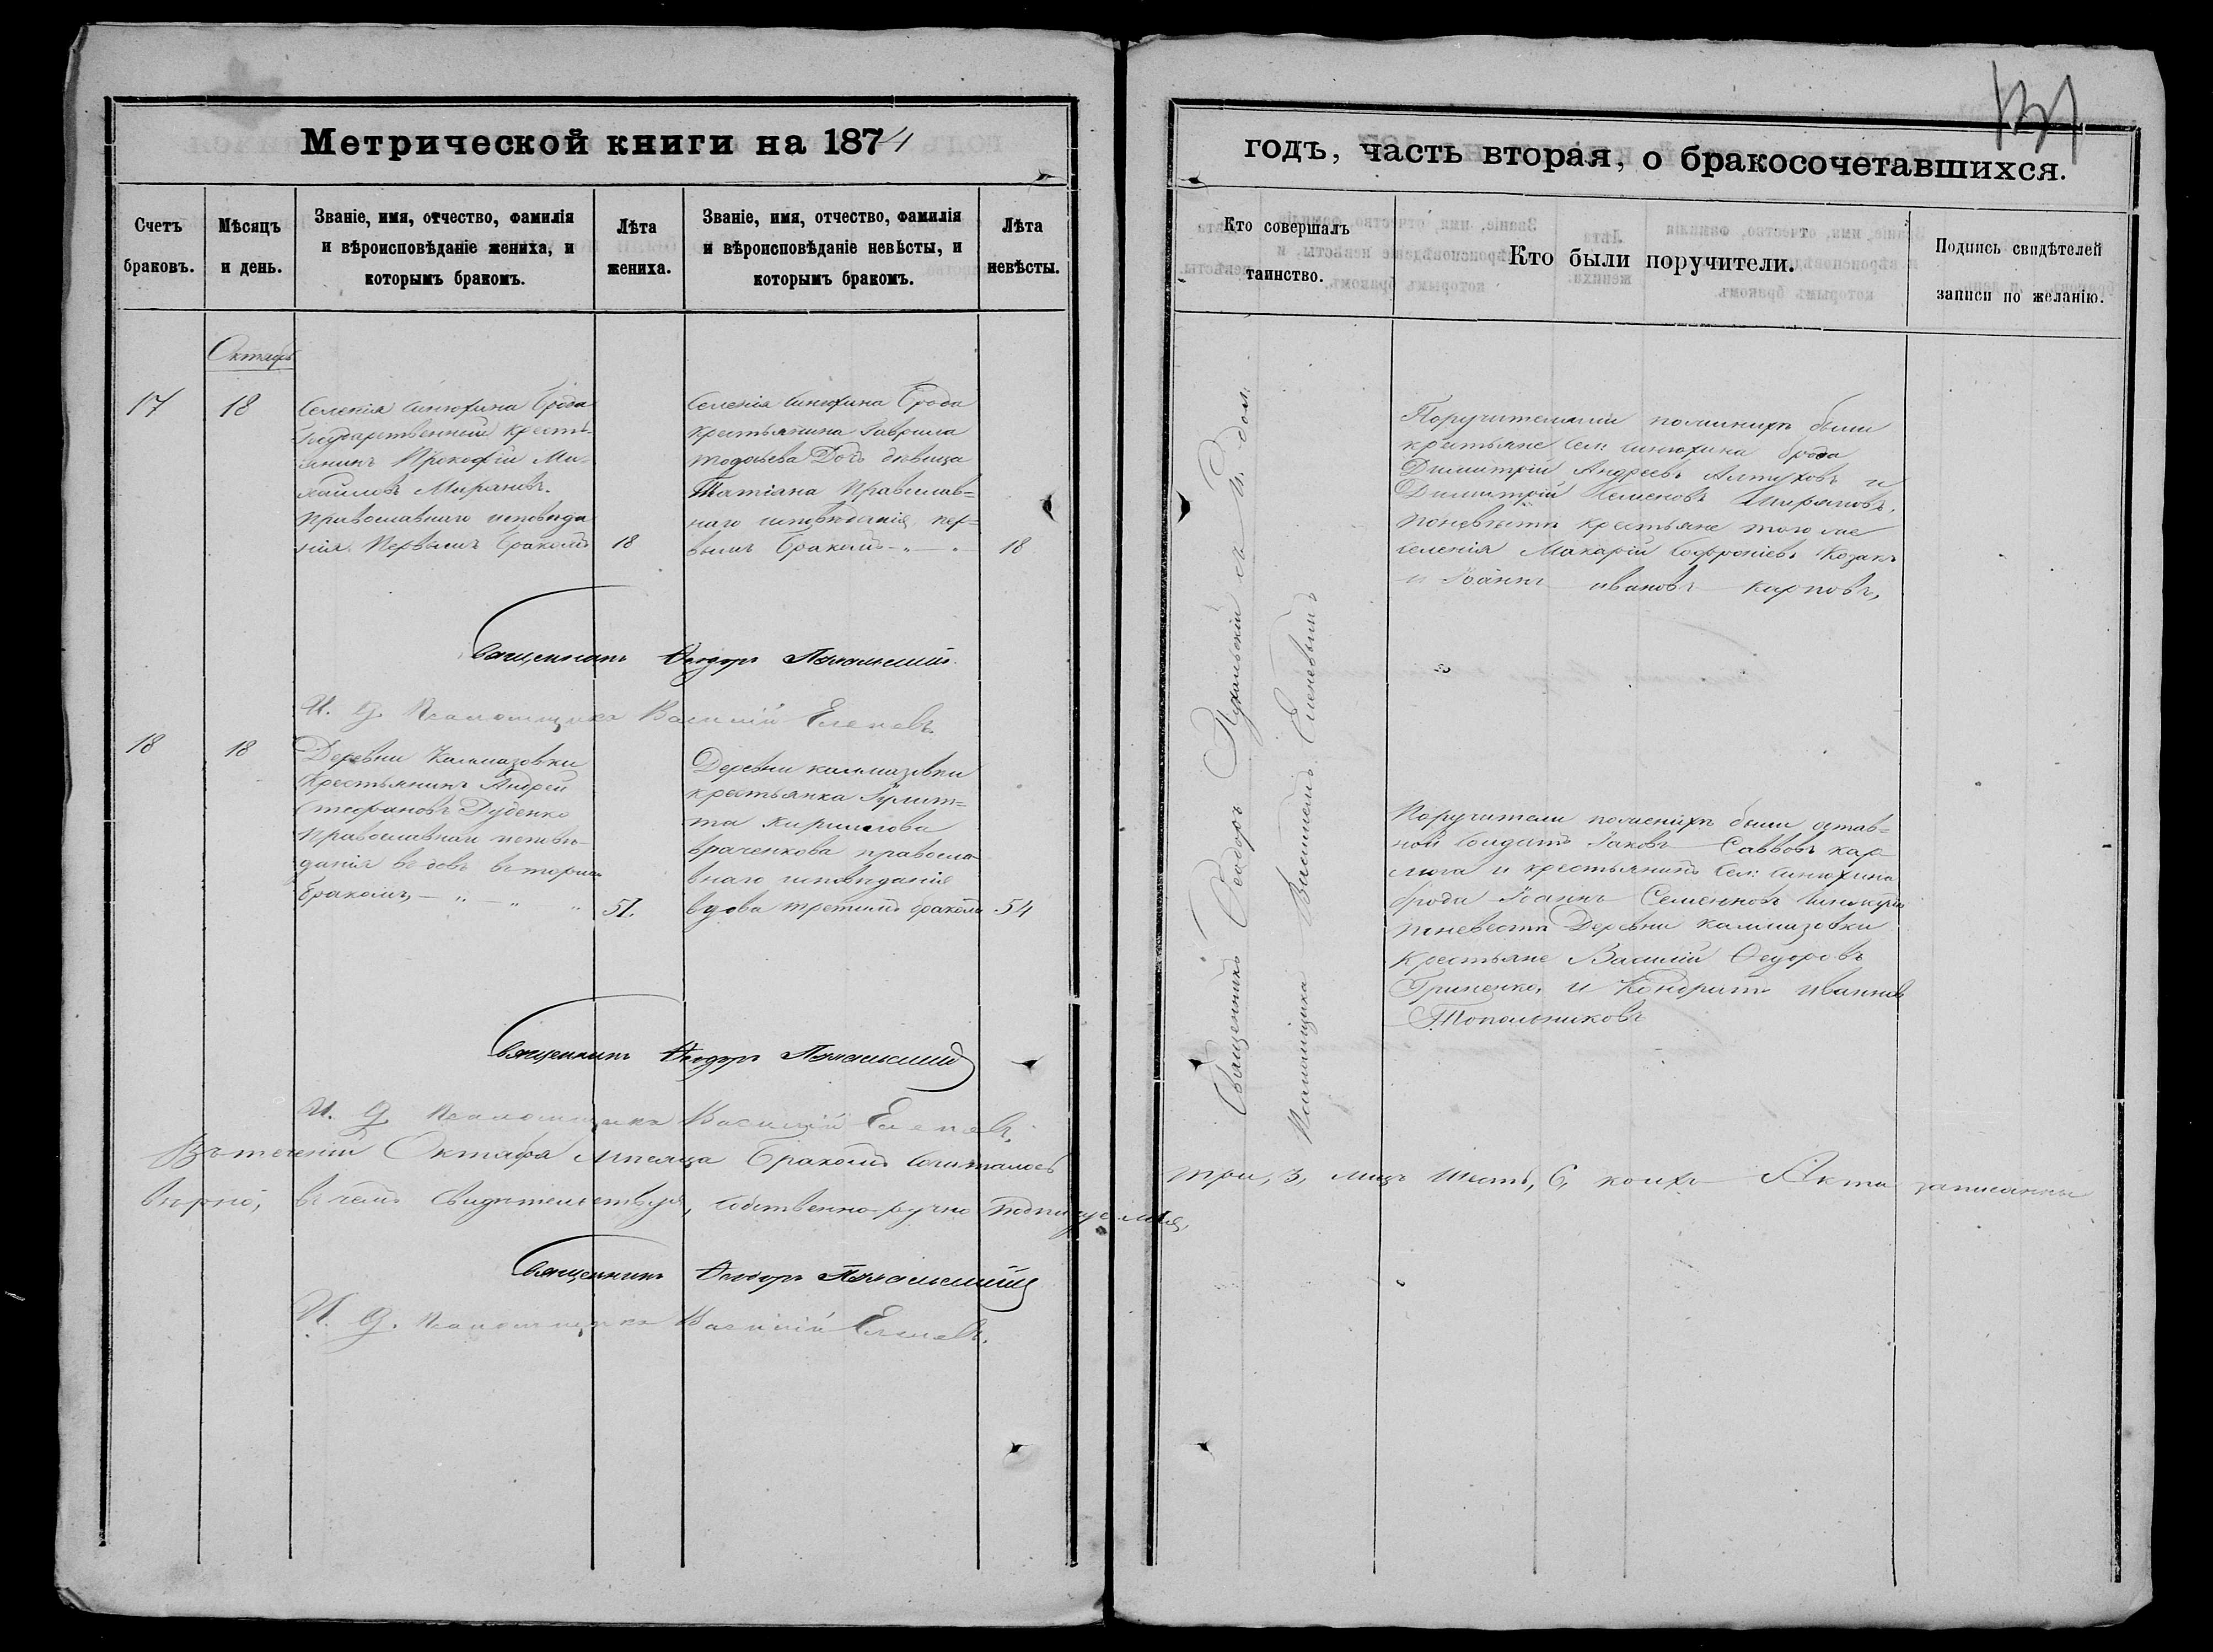 131
Метрической книги на 1874
годъ, часть вторая, о бракосочетавшихся.
Счетъ браковъ.
Мѣсяцъ и день.
Званіе, имя, отчество, фамилія и вѣроисповѣданіе жениха, и которымъ бракомъ.
Лѣта жениха.
Званіе, имя, отчество, фамилія и вѣроисповѣданіе невѣсты, и которымъ бракомъ.
Лѣта невѣсты.
Кто совершалъ таинство.
Кто были поручители.
Подпись свидѣтелей записи по желанію.
Октябрь
17
18
Селенія Синюхина Брода
Государственный крестья-
янинъ Прокофій Ми-
хайловъ
Православнаго исповѣда
нія. Первымъ бракомъ
18
Селенія Синюхина Брода
крестьянина Гаврила
Дочь дѣвица
Татіана Православ=
наго исповѣданія, пер=
вымъ бракомъ
18
Поручителями по женихѣ были
крестьяне Сел: Синюхина брода
Димитрій Андреевъ Алтуховъ и
Димитрій Семеновъ
по невѣстѣ крестьяне того же
селенія Макарій Софроніевъ Козакъ
и Іоаннъ Ивановъ Карповъ,
Священникъ Ѳеодоръ
И. д. Псаломщика Василій Еленевъ.
18
18
Деревни Калмазовки
Крестьянинъ Андрей
Стефановъ Руденко
Православнаго исповѣ-
данія вдовъ вторымъ
бракомъ,
51.
Деревни Калмазовки
крестьянка Іулит=
та Кириллова
православ
внаго исповѣданія
вдова третьимъ бракомъ
54
Поручители по женихѣ были отстав=
ной солдатъ Іаковъ Саввовъ Кар
и крестьянинъ Сел: Синюхина
брода Іоаннъ Семеновъ
по невѣстѣ Деревни Калмазовки
Крестьяне Василій Ѳедоровъ
Гриценко, и Кондратъ Ивановъ
Топольниковъ
Священникъ Ѳеодоръ
И. д. Псаломщика Василій Еленевъ.
Священникъ Ѳеодоръ
Псаломщика Василіемъ Еленевымъ
Въ теченіи Октября мѣсяца бракомъ сочталось
три, 3, лицъ шесть, 6, коихъ Акты записанны
вѣрно, въ чемъ свидѣтельствуя, собственно-ручно подписуемся,
Священникъ Ѳеодоръ
И. д. Псаломщика Василій Еленевъ.